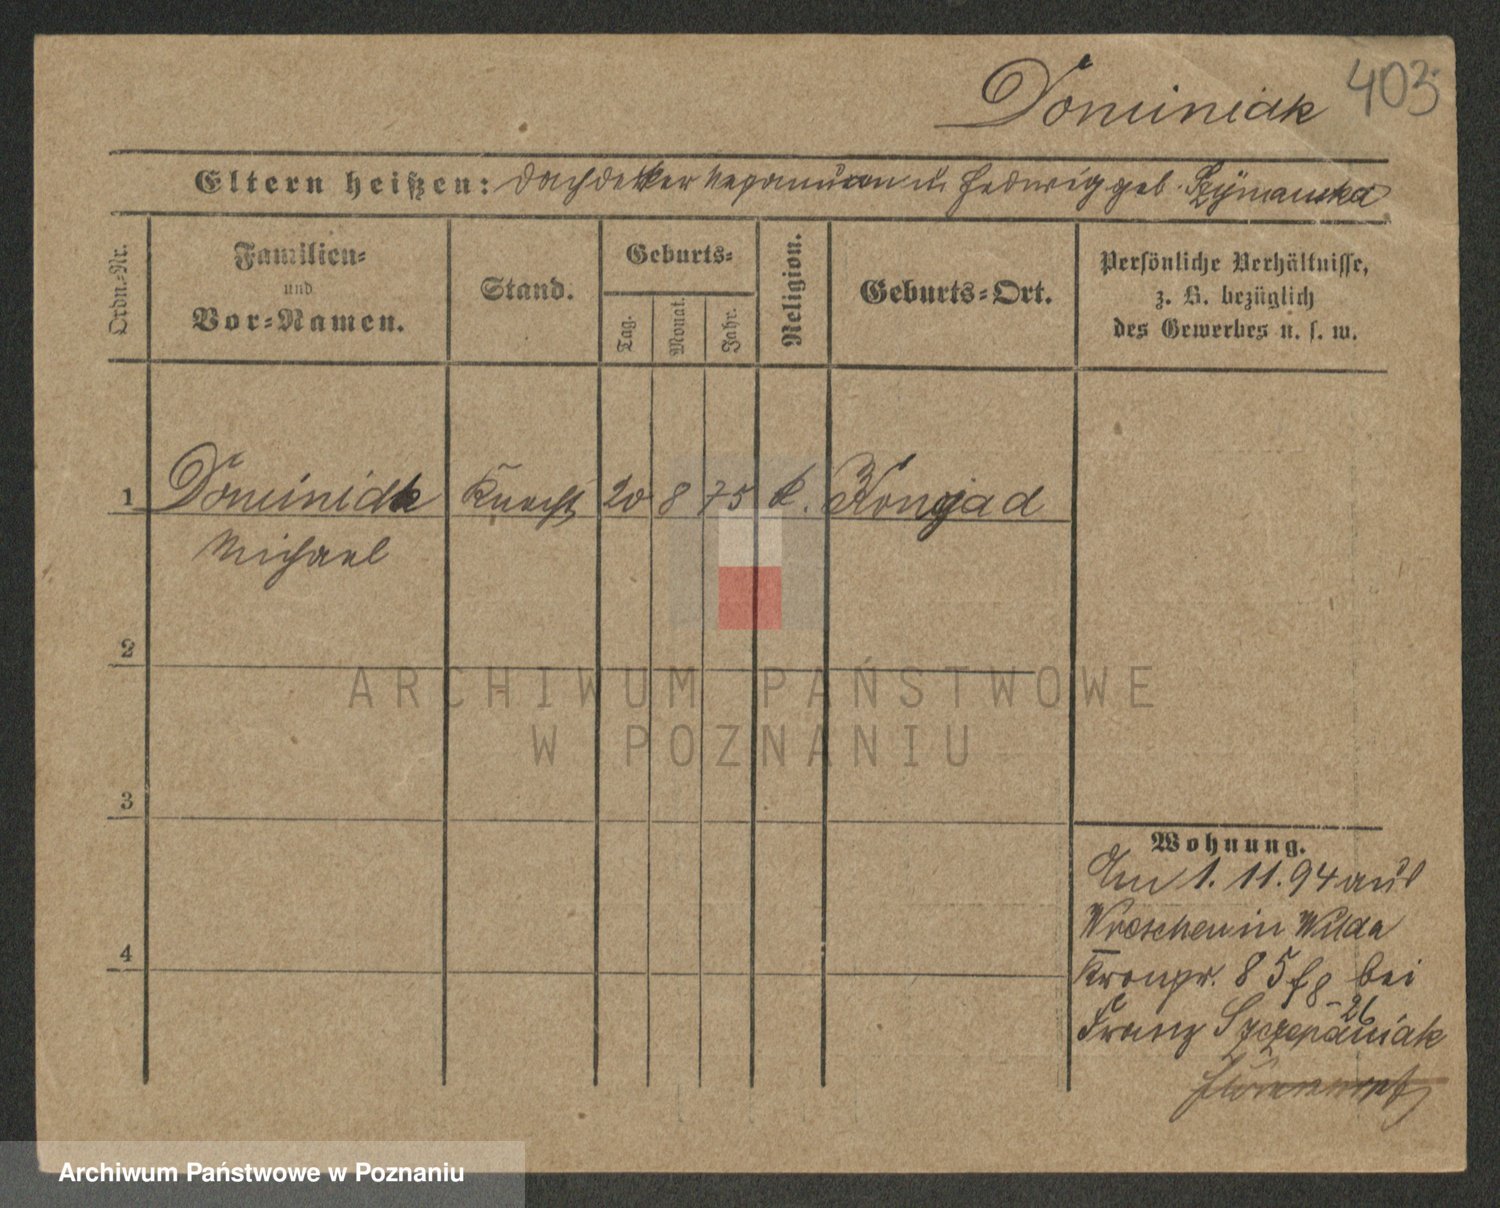 403
Dominiak
Eltern heißen: Dachdekker Nepomucen u. Hedwig geb. Szymanska
Ordn.-Nr.
Familien-
und
Vor-Namen.
Stand.
Geburts-
Tag.
Monat.
Jahr.
Religion.
Geburts-Ort.
Persönliche Verhältnisse,
z. B. bezüglich
des Gewerbes u. s. w.
1 Dominiak Knecht 20 8 75 k.
Michael
2
3
4
Wohnung.
Am 1. 11. 94 aus
Wreschen in Wilda
Kronpr. 85 bei
Franz Szczepaniak
ARCHIWUM PAŃSTWOWE
W POZNANIU
Archiwum Państwowe w Poznaniu